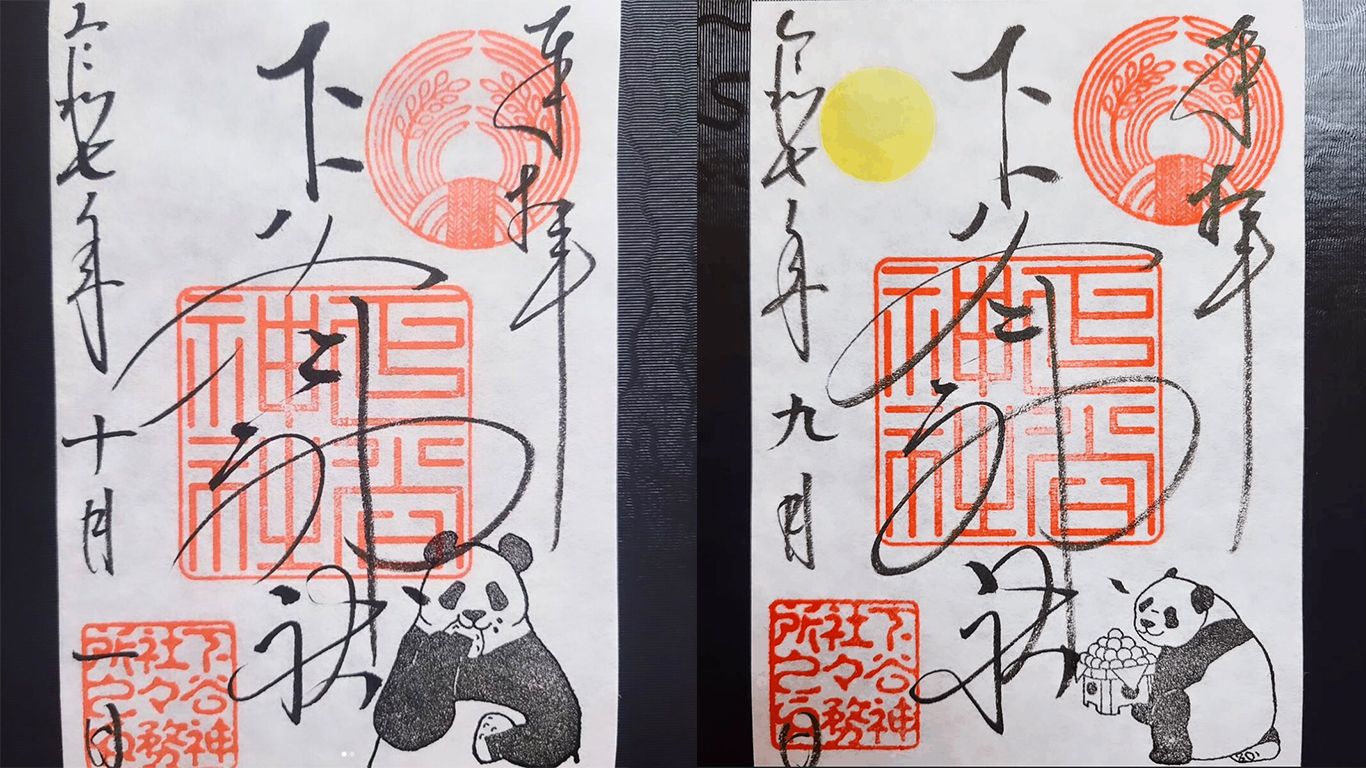 奉拝
下谷神社
下谷神社
令和七年十月一日
下谷神
社々務
所之印
奉拝
下谷神社
下谷神社
令和七年九月
下谷神
社々務
所之印